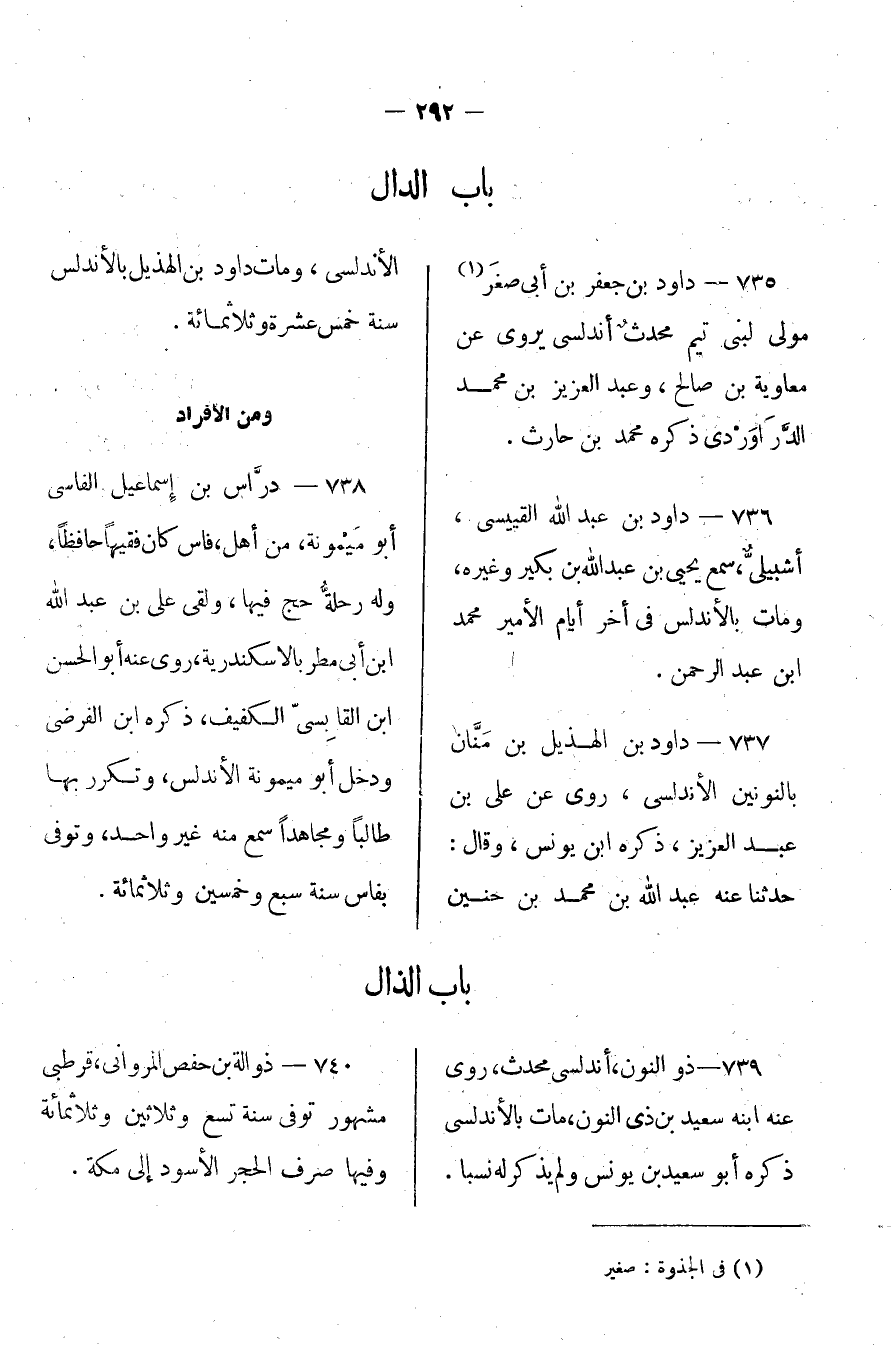 — ٢٩٢ —
باب الدال
٧٣٥ — داود بن جعفر بن أبى صغَر (١)
مولى لبنى تيم محدثٌ أندلسى يروى عن
معاوية بن صالح ، وعبد العزيز بن محمــد
الدَّرَاوَرْدى ذكره محمد بن حارث .
٧٣٦ — داود بن عبد الله القييسى ،
أشبيلىٌّ، سمع يحيى بن عبدالله بن بكير وغيره،
ومات بالأندلس فى أخر أيام الأمير محمد
ابن عبد الرحمن .
٧٣٧ — داود بن الهــذيل بن مَنَّان
بالنونين الأندلسى ، روى عن على بن
عبــد العزيز ، ذكره ابن يونس ، وقال :
حدثنا عنه عبد الله بن محمــد بن حنــين
الأندلسى ، ومات داود بن الهذيل بالأندلس
سنة خمس عشرة وثلاثمـائة .
ومن الأفراد
٧٣٨ — درَّاس بن إسماعيل الفاسى
أبو مَيْمُونة، من أهل، فاس كان فقيهاً حافظاً،
وله رحلةٌ حج فيها ، ولقى على بن عبد الله
ابن أبى مطر بالاسكندرية، روى عنه أبو الحسن
ابن القابِسىّ الـكفيف، ذكره ابن الفرضى
ودخل أبو ميمونة الأندلس، وتــكرر بهـا
طالباً ومجاهداً سمع منه غير واحــد، وتوفى
بفاس سنة سبع وخمسين وثلاثمائة .
باب الذال
٧٣٩ — ذو النون، أندلسى محدث، روى
عنه ابنه سعيد بن ذى النون، مات بالأندلسى
ذكره أبو سعيد بن يونس ولم يذكر له نسبا .
٧٤٠ — ذوالة بن حفص المروانى، قرطبى
مشهور توفى سنة تسع وثلاثين وثلاثمأئة
وفيها صرف الحجر الأسود إلى مكة .
(١) فى الجذوة : صغير